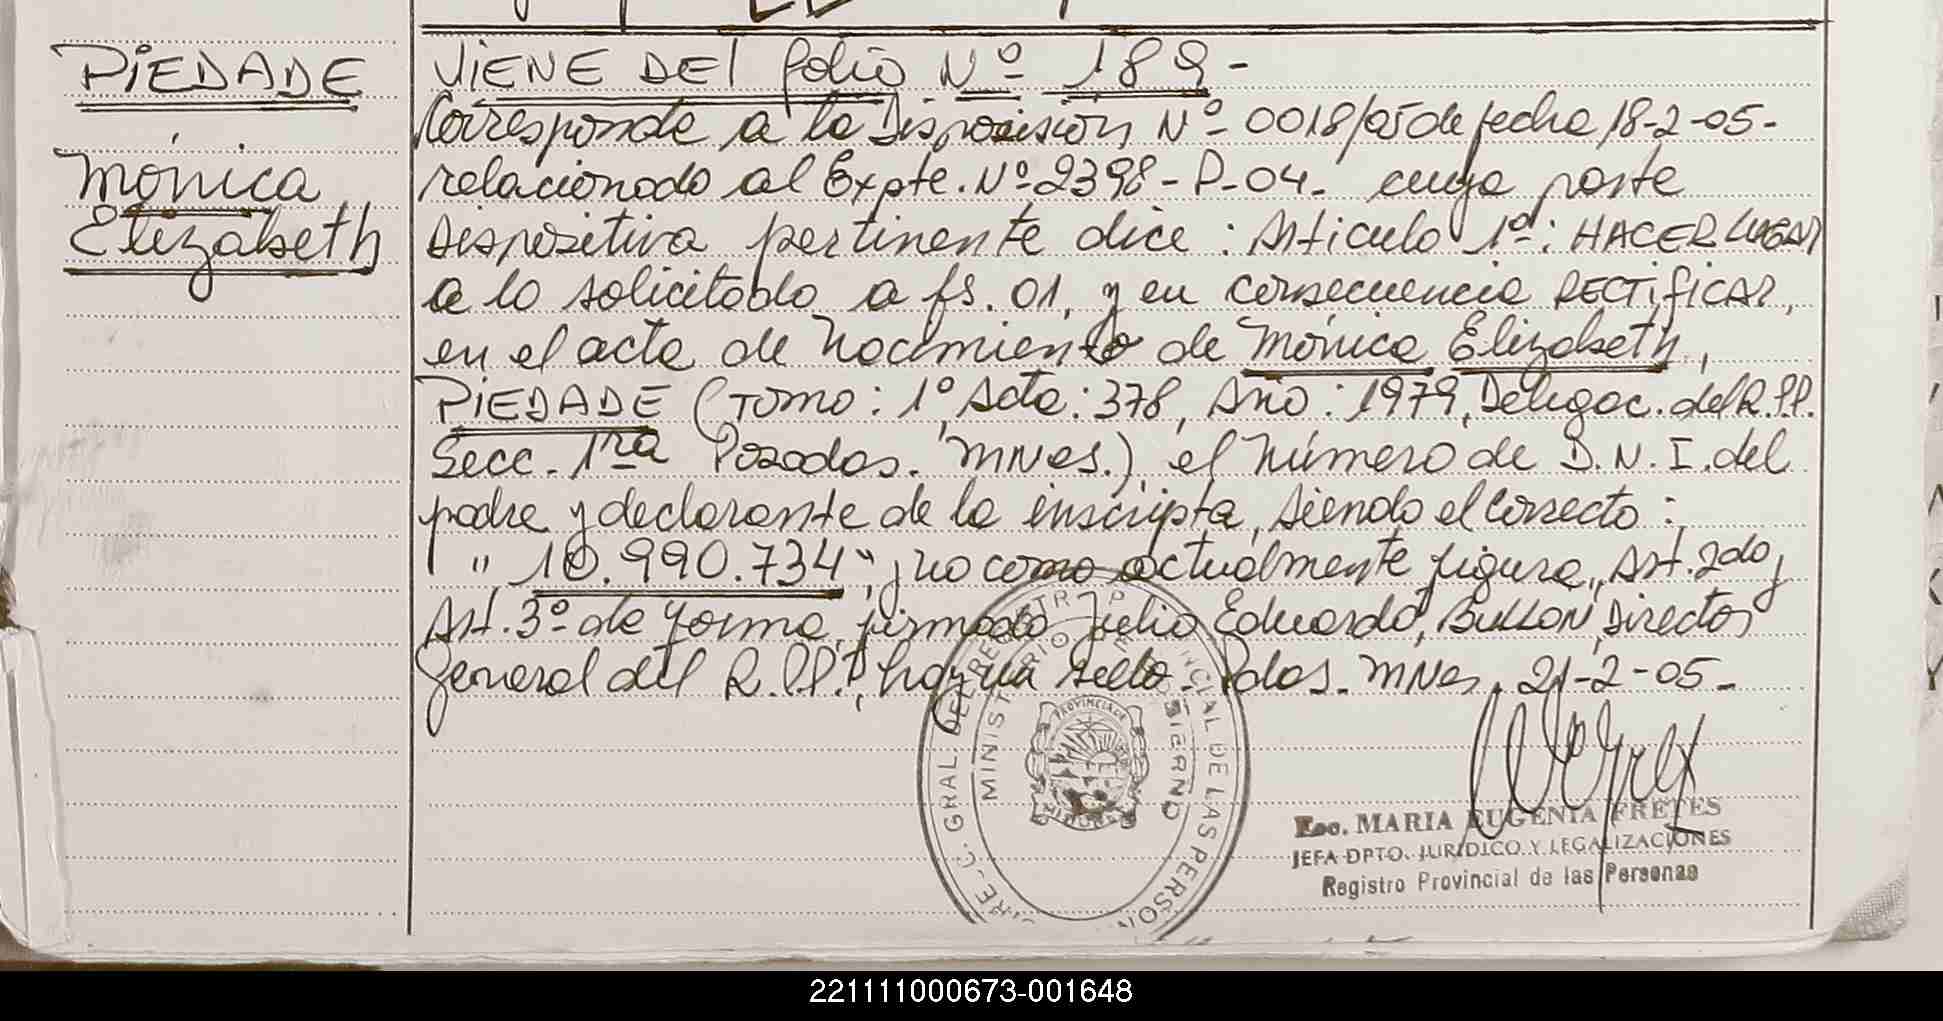 PIEDADE
Mónica
Elizabeth
VIENE DEL folio Nº 189-
Corresponde a la Disposición Nº 0018/05 de fecha 18-2-05-
relacionado al Expte. Nº 2398-P-04- cuya parte
Dispositiva pertinente dice: Artículo 1º: HACER LUGAR
a lo solicitado a fs. 01, y en consecuencia RECTIFICAR,
en el acta de Nacimiento de Mónica Elizabeth,
PIEDADE (Tomo: 1º Acta: 378, Año: 1979, Delegac. del R.P.P.
Secc. 1ra Posadas. MNes.) el número de D.N.I. del
padre y declarante de la inscripta, siendo el correcto:
"10.990.734", y no como actualmente figura,, Art. 2do y
Art. 3º de forma, firmado Julio Eduardo, BULLON, Director
General del R.P.P., hay un sello. Pdas. MNes, 21-2-05-
DIRE-C. GRAL. DEL REGISTR PROVINCIAL DE LAS PERSON
MINISTERIO DE GOBIERNO
PROVINCIA DE
MISIONES
Esc. MARIA EUGENIA FRETES
JEFA DPTO. JURIDICO Y LEGALIZACIONES
Registro Provincial de las Personas
221111000673-001648